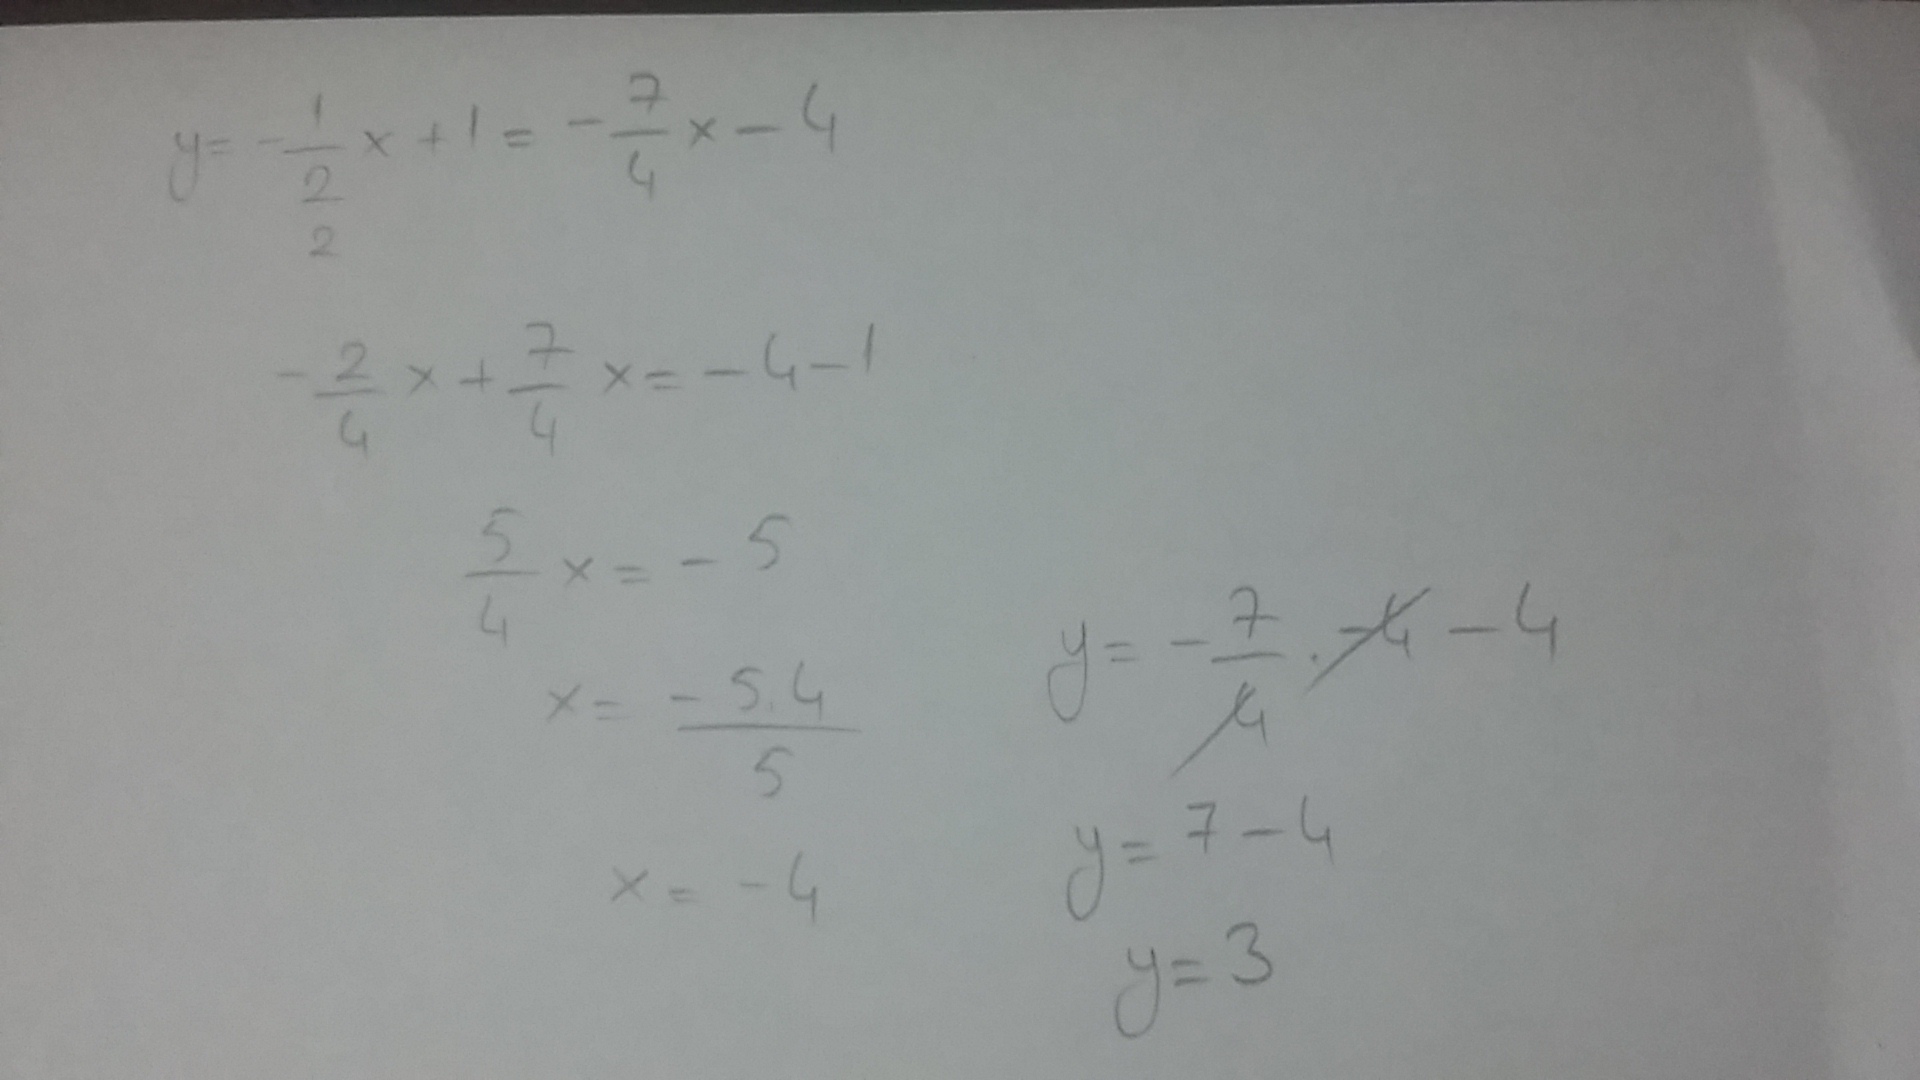 y = -1/2 x + 1 = -7/4 x - 4
2
-2/4 x + 7/4 x = -4 - 1
5/4 x = -5
x = -5.4/5
x = -4
y = -7/4 . -4 - 4
y = 7 - 4
y = 3